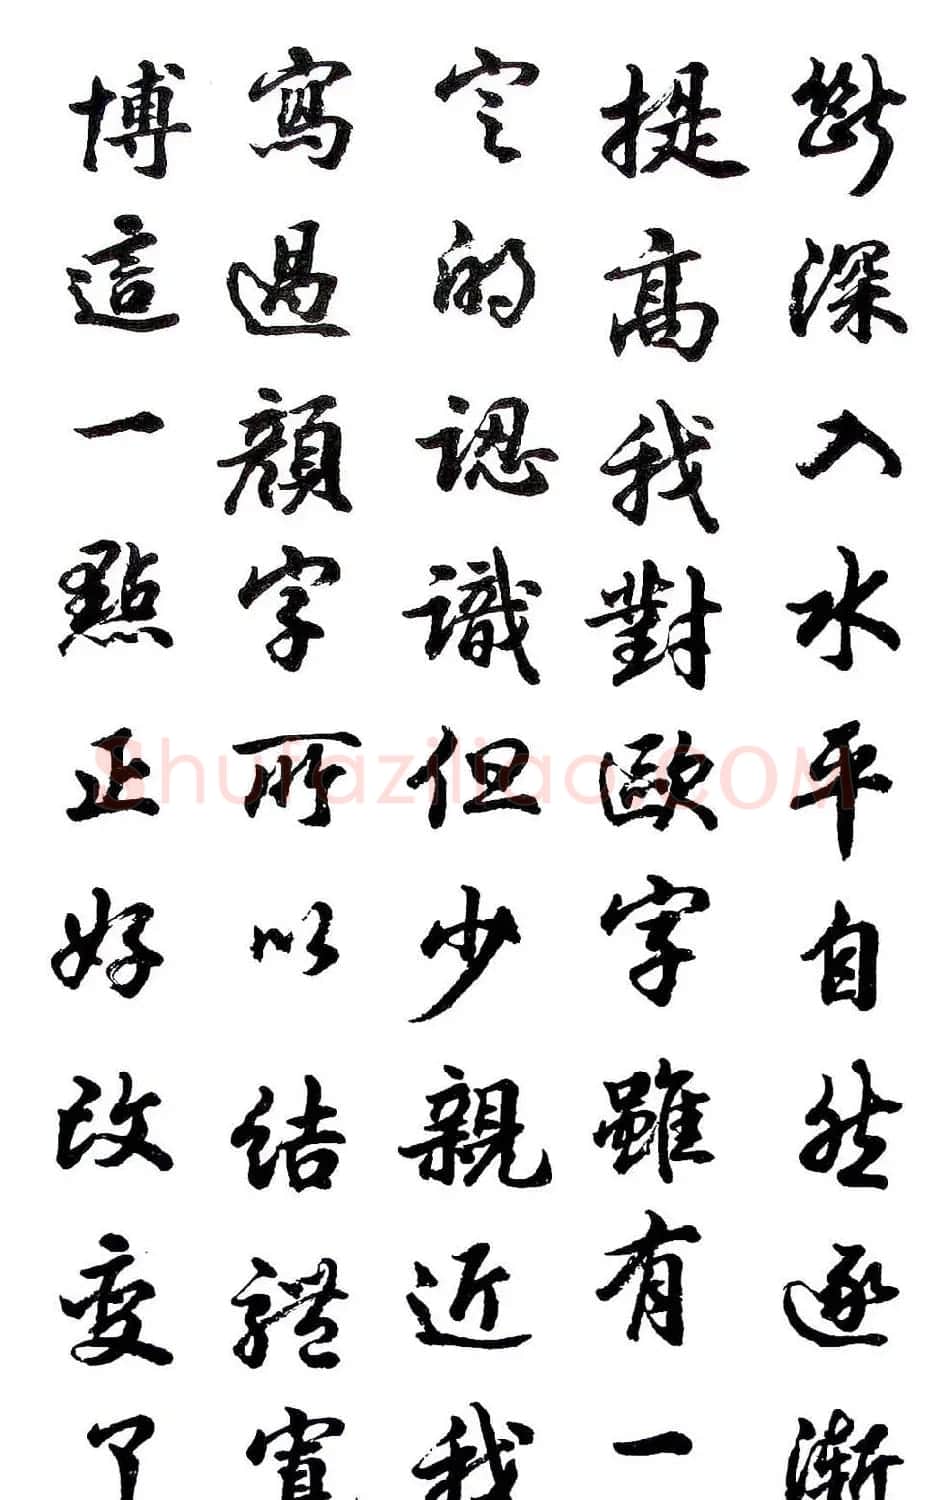 斷深入水平自然逐漸
提高我對歐字雖有一
定的認識但少親近我
寫過顏字所以結體寬
博這一點正好改變了
Shufaziliao.COM